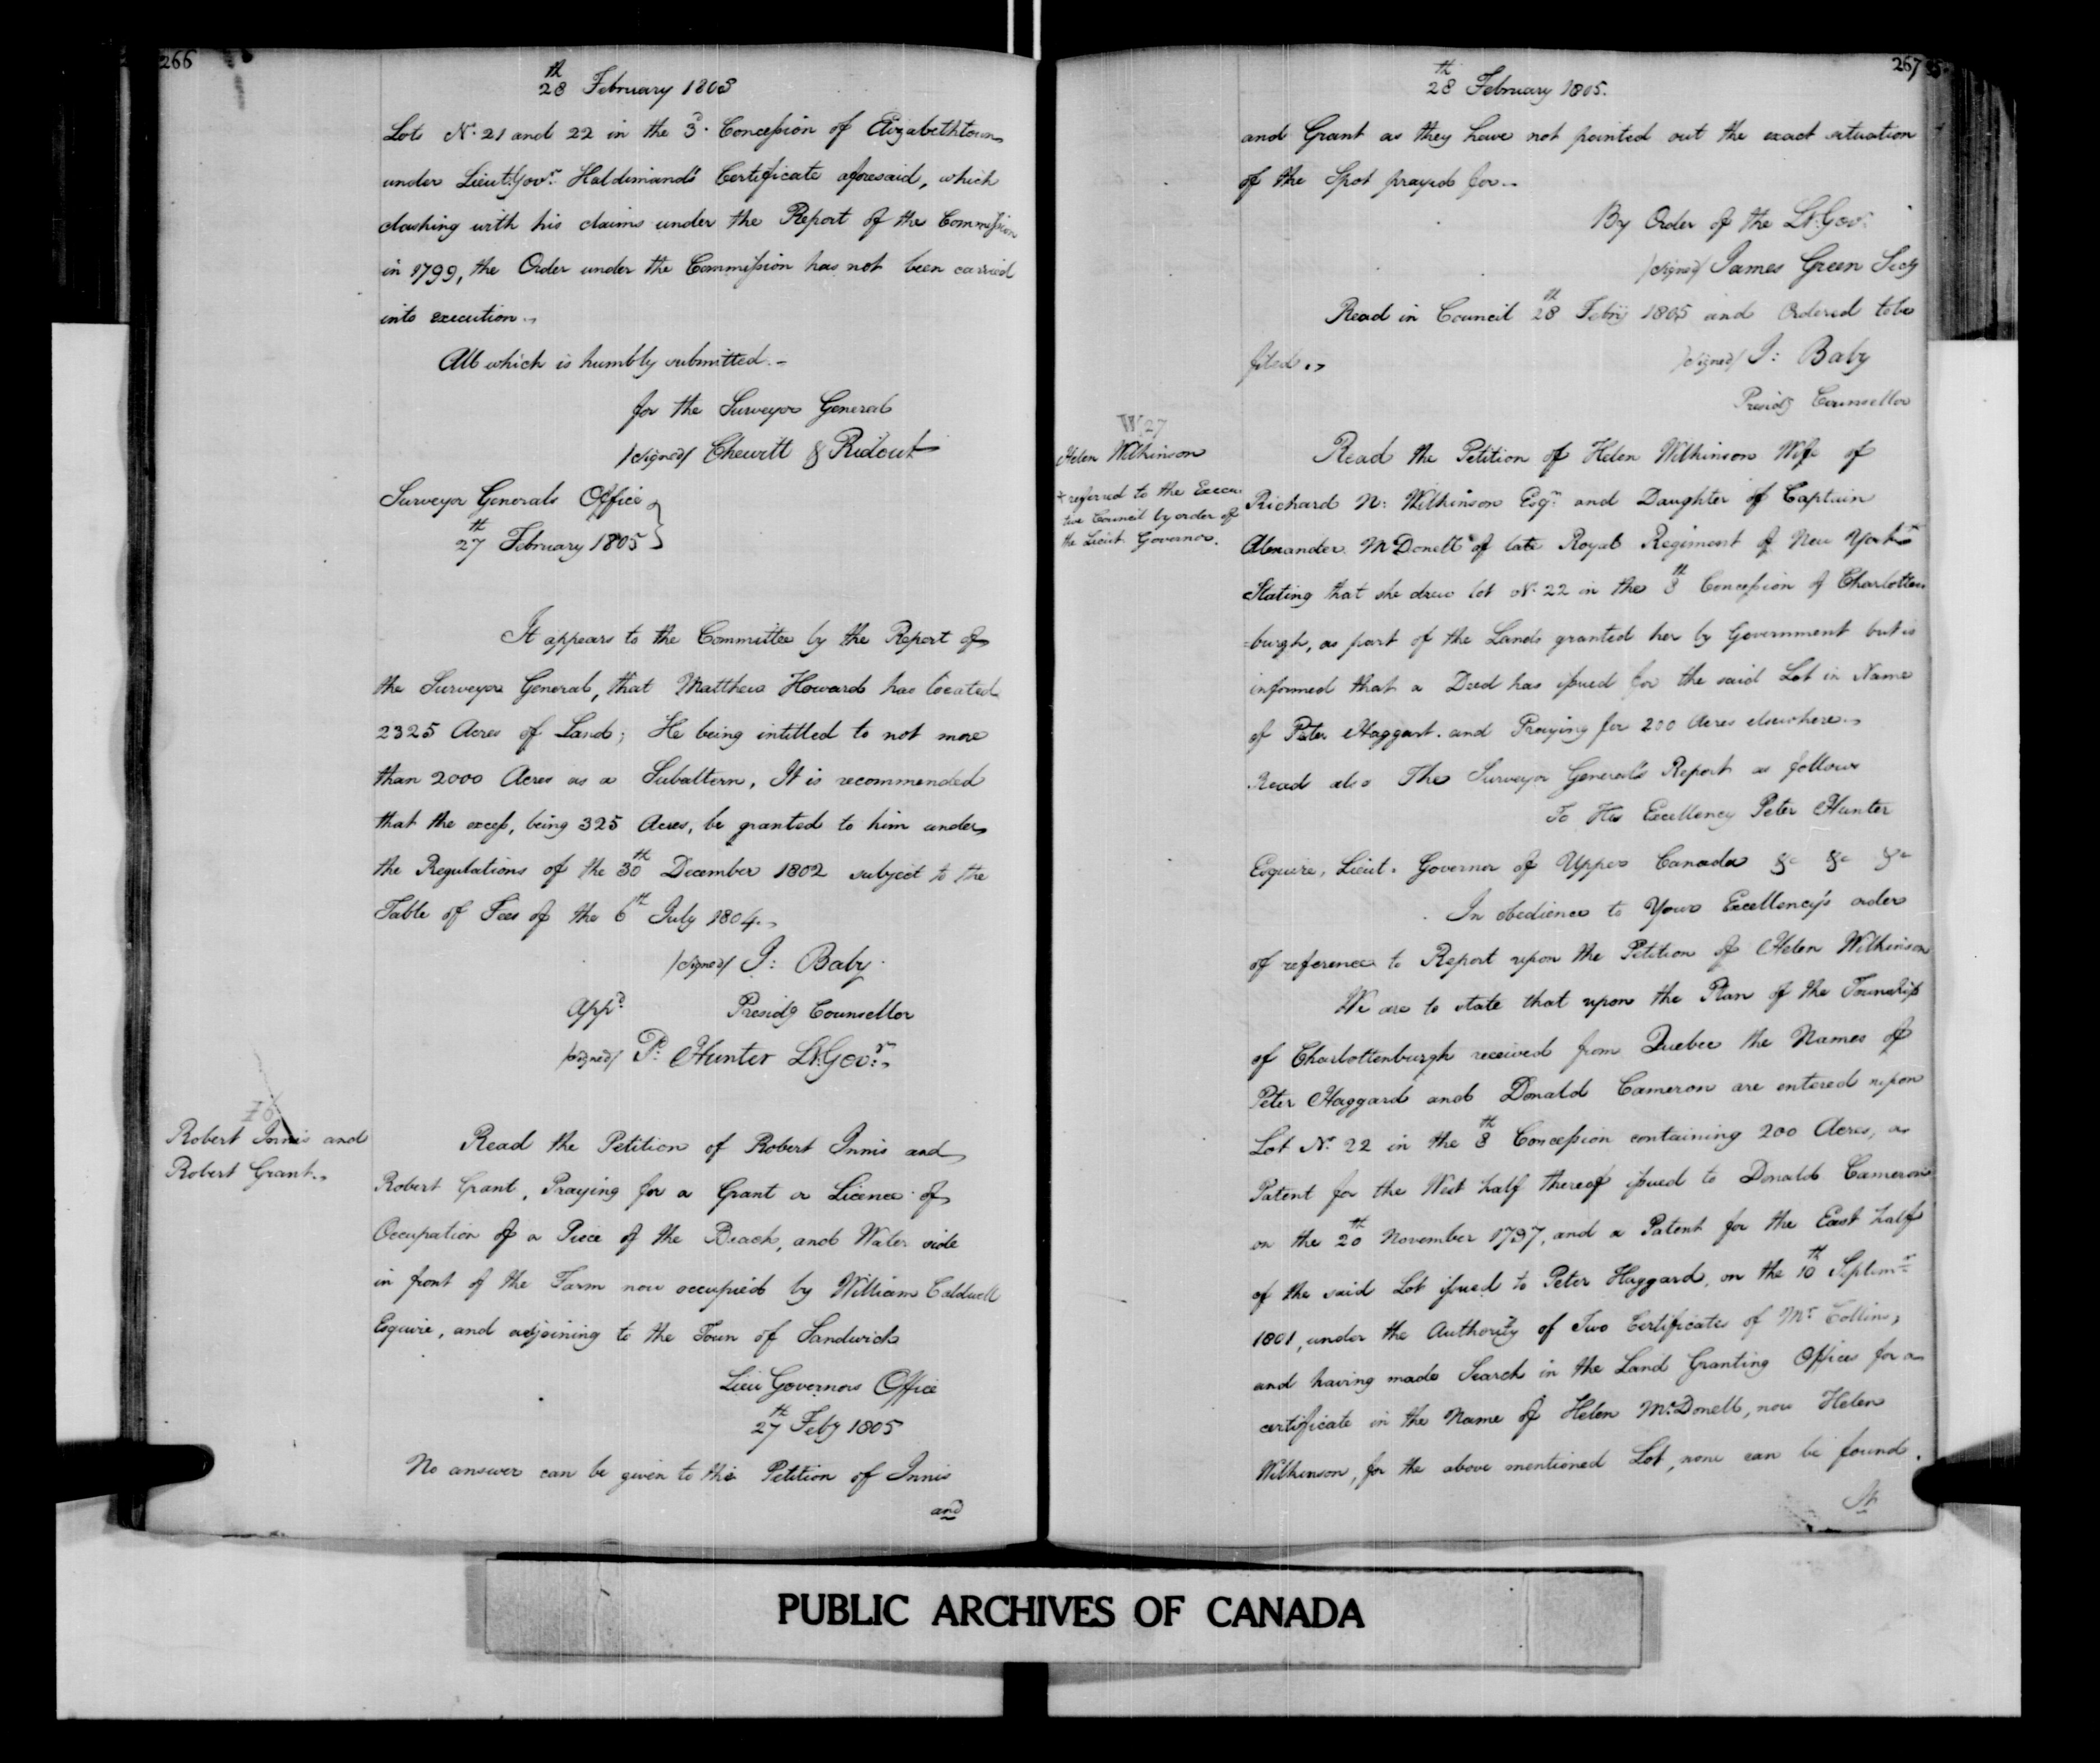 266
28th February 1805
Lots No. 21 and 22 in the 3d. Concession of Elizabethtown
under Lieut. Govr. Haldimand's Certificate aforesaid, which
clashing with his claims under the Report of the Commission
in 1799, the Order under the Commission has not been carried
into execution.
All which is humbly submitted.
for the Surveyor General
/signed/ Chewitt & Ridout
Surveyor Generals Office
27th February 1805
It appears to the Committee by the Report of
the Surveyor General, that Matthew Howard has located
2325 Acres of Land; He being intitled to not more
than 2000 Acres as a Subaltern, It is recommended
that the excess, being 325 Acres, be granted to him under
the Regulations of the 30th December 1802 subject to the
Table of Fees of the 6th July 1804.
/signed/ J: Baby
Appd. Presidg Counsellor
/signed/ P: Hunter Lt. Govr.
Robert Innis and
Robert Grant.
Read the Petition of Robert Innis and
Robert Grant, Praying for a Grant or Licence of
Occupation of a Piece of the Beach, and Water side
in front of the Farm now occupied by William Caldwell
Esquire, and adjoining to the Town of Sandwich
Lieu Governors Office
27th Feby 1805
No answer can be given to this Petition of Innis
and
267
28th February 1805.
and Grant as they have not pointed out the exact situation
of the Spot prayed for.
By Order of the Lt. Gov.
/signed/ James Green Secy
Read in Council 28th Feby 1805 and Ordered to be
filed.
/signed/ J: Baby
Presidg Counsellor
W 27
Helen Wilkinson
+ referred to the Execu
tive Council by order of
the Lieut. Governor.
Read the Petition of Helen Wilkinson Wife of
Richard N: Wilkinson Esqr. and Daughter of Captain
Alexander McDonell of late Royal Regiment of New York
Stating that she drew lot No. 22 in the 8th Concession of Charlotten
=burgh, as part of the Lands granted her by Government but is
informed that a Deed has issued for the said Lot in Name
of Peter Haggart. and Praying for 200 Acres elsewhere.
Read also The Surveyor General's Report as follows
To His Excellency Peter Hunter
Esquire, Lieut. Governor of Upper Canada &c &c &c
In obedience to Your Excellency's order
of reference to Report upon the Petition of Helen Wilkinson
We are to state that upon the Plan of the Township
of Charlottenburgh received from Quebec the Names of
Peter Haggard and Donald Cameron are entered upon
Lot No. 22 in the 8th Concession containing 200 Acres, a
Patent for the West half thereof issued to Donald Cameron
on the 20th November 1797, and a Patent for the East half
of the said Lot issued to Peter Haggard, on the 10th Septemr.
1801, under the Authority of Two Certificates of Mr. Collins,
and having made Search in the Land Granting Offices for a
certificate in the Name of Helen McDonell, now Helen
Wilkinson, for the above mentioned Lot, none can be found.
PUBLIC ARCHIVES OF CANADA